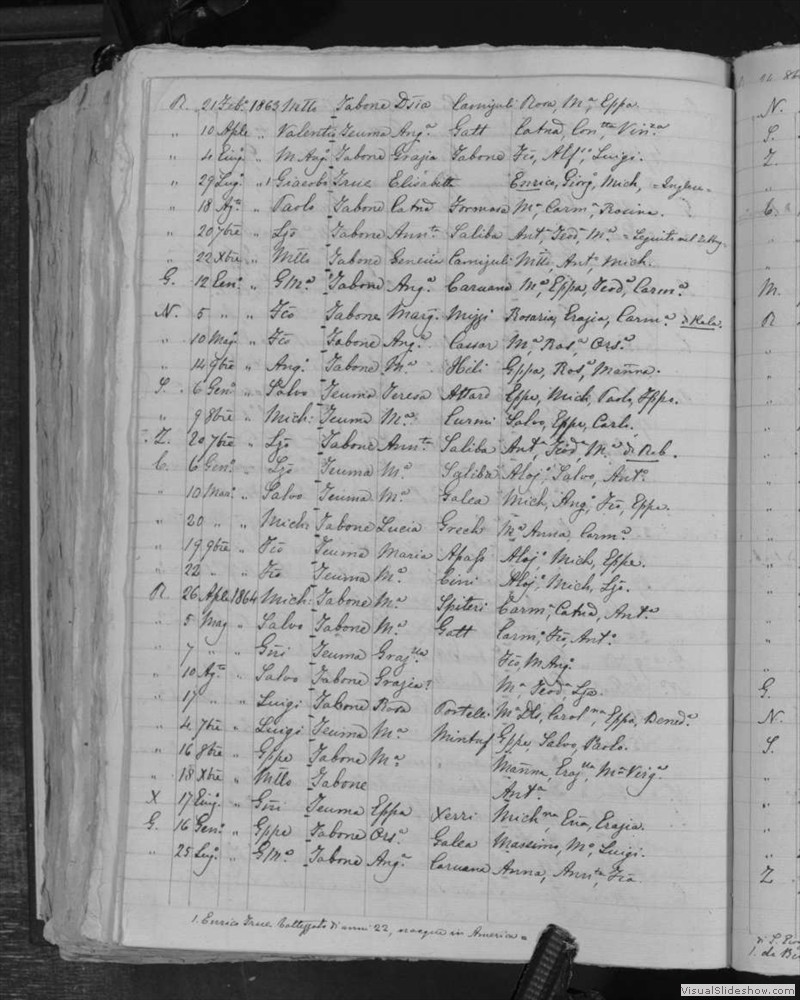 R. 21 Feb.o 1863 Mtto Tabone Dsia Camiguli Rosa, M.a, Eppa.
" 10 Aple " Valento Teuma Ang.a Gatt Catna, Con.tta, Vin.za
" 4 Giug. " M. Ang. Tabone Grazia Tabone Fco, Alf.so, Luigi.
" 29 Lug. " 1 Giacobo True Elisabetta Enrico, Giorg, Mich, = Inglese =
" 18 Ag.to " Paolo Tabone Catna Formosa M.a, Carm.a, Rosina.
" 20 7bre " Ljo Tabone Ann.ta Saliba Ant, Teod, M.a
" 22 Xbre " Mtto Tabone Genesia Camiguli Mtto, Ant, Mich.
G. 12 Gen.o " GM.a Tabone Ang.a Caruana M.a, Eppa, Teod.a, Carm.a
N. 5 " " Fco Tabone Marg. Mizzi Rosaria, Grazia, Carm.a di Kala.
" 10 Mag. " Fco Tabone Ang.a Cassar M.a, Ros.a, Ors.a
" 14 9bre " Ang. Tabone M.a Hili Gppa, Ros.a, Manna.
S. 6 Gen.o " Salvo Teuma Teresa Attard Eppe, Mich, Paolo, Fppo.
" 9 8bre " Mich: Teuma M.a Curmi Salvo, Eppe, Carlo.
Z. 20 7bre " Ljo Tabone Ann.ta Saliba Ant, Teod.a, M.a di Rab.
C. 6 Gen.o " Ljo Teuma M.a Saliba Aloj, Salvo, Ant.o
" 10 Mar. " Salvo Teuma M.a Galea Mich, Ang, Fco, Eppe.
" 20 " " Mich: Tabone Lucia Grech M.a Anna, Carm.a
" 19 9bre " Fco Teuma Maria Apap Aloj, Mich, Eppe.
" 22 " " Fco Teuma M.a Cini Aloj, Mich, Ljo.
R. 26 Aple 1864 Mich: Tabone M.a Spiteri Carm. Catna, Ant.a
" 5 Mag " Salvo Tabone M.a Gatt Carm. Fco, Ant.o
" 7 " " Gni Teuma Graz.lla Fco, M. Ang.
" 10 Ag.to " Salvo Tabone Grazia M.a, Teod.a, Ljo.
" 17 " " Luigi Tabone Rosa Portelli M.a Dls, Carol.na, Eppa, Bened.a
" 4 7bre " Luigi Teuma M.a Mintuf Gppe, Salvo, Paolo.
" 16 8bre " Gppe Tabone M.a Manna, M.a Virg.a
" 18 Xbre " Mtto Tabone Ant.a
X 17 Giug. " Gni Teuma Eppa Xerri Mich.na, Grazia.
G. 16 Gen.o " Gppe Tabone Ors.a Galea Massimo, M.a, Luigi.
" 25 Lug. " GM.a Tabone Ang.a Caruana Anna, Ann.ta, Fca
1. Enrico True battezzato di anni 22, nacque in America =
N.
S.
Z.
"
C.
"
"
M.
R
G.
N.
S.
Z
VisualSlideshow.com